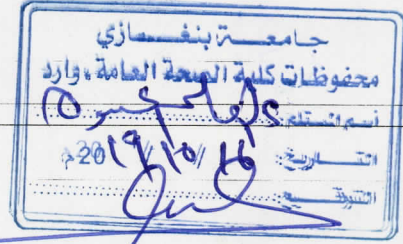 جامعــة بنغــازي
محفوظات كلية الصحة العامة ، وارد
أسم المستلم :
التــاريخ : 16/10/2019م
التوقيــع :